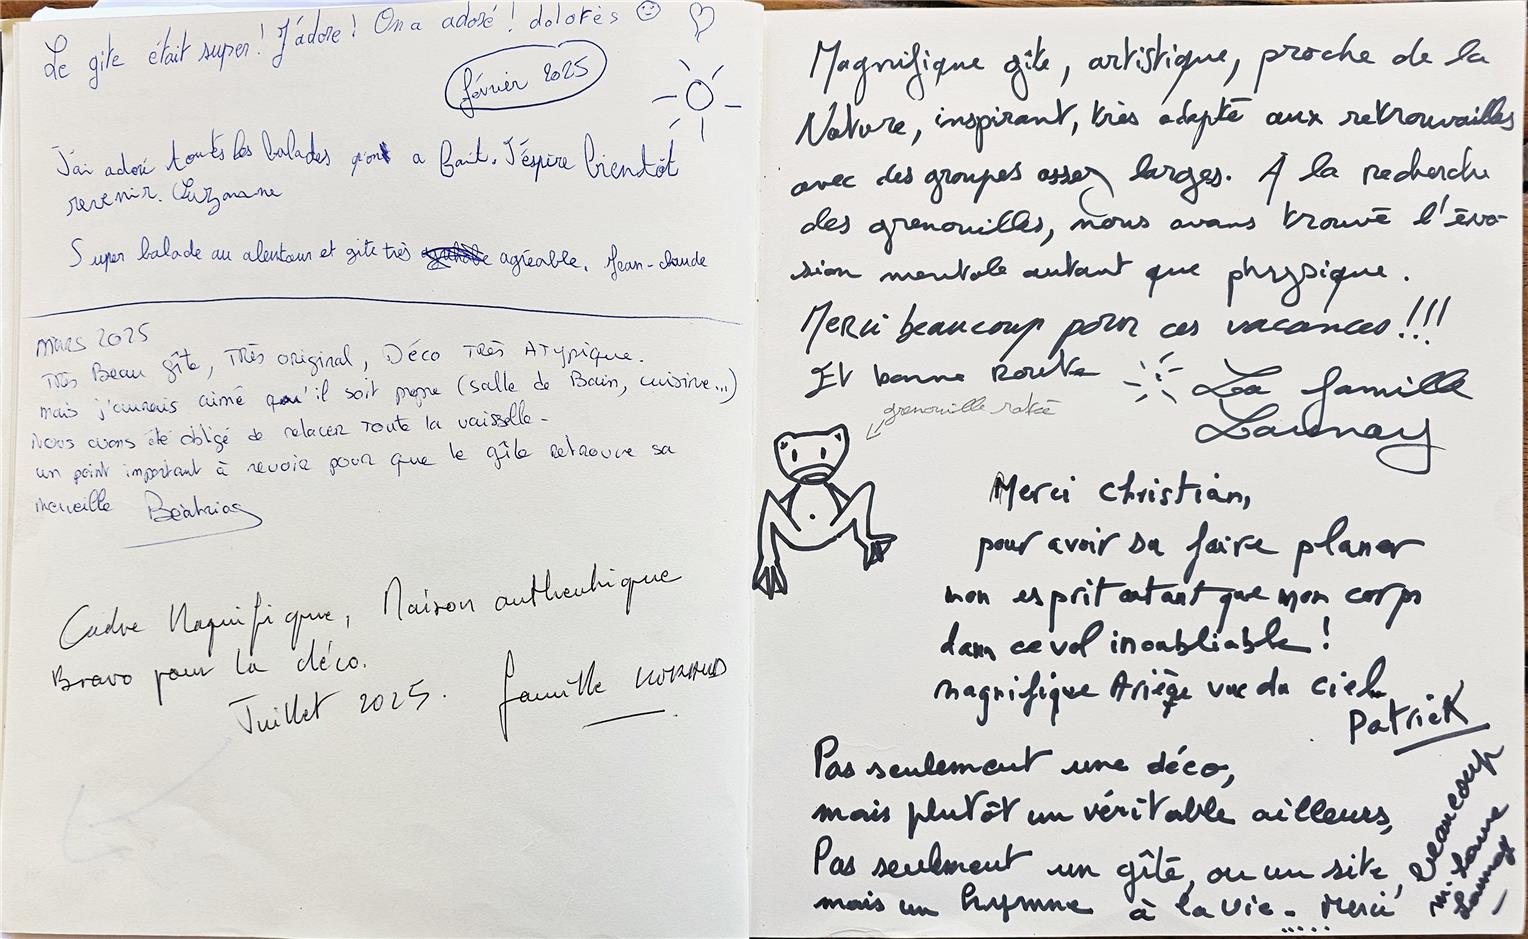 Le gîte était super! J'adore! On a adoré! dolorès
février 2025
J'ai adoré toutes les balades qu'on a fait. J'éspère bientôt
revenir. Luzmane
Super balade au alentour et gite très agréable. Jean-claude
mars 2025
Très Beau gîte, Très original, Déco Très Atypique.
mais j'aurais aimé qu'il soit propre (salle de Bain, cuisine...)
Nous avons été obligé de relaver Toute la vaisselle -
un point important à revoir pour que le gîte retrouve sa
merveille Béatrice
Cadre Magnifique, Maison authentique
Bravo pour la déco.
Juillet 2025. famille
Magnifique gîte, artistique, proche de la
Nature, inspirant, très adapté aux retrouvailles
avec des groupes assez larges. À la recherche
des grenouilles, nous avons trouvé l'éva-
sion mentale autant que physique.
Merci beaucoup pour ces vacances!!!
Et bonne route
La famille
Launay
grenouille ratée
Merci Christian,
pour avoir su faire planer
mon esprit autant que mon corps
dans ce vol inoubliable!
magnifique Ariège vue du ciel
Patrick
Pas seulement une déco,
mais plutôt un véritable ailleurs,
Pas seulement un gîte, ou un site,
mais un hymne à la vie... Merci
Beaucoup
M. Laure
Launay